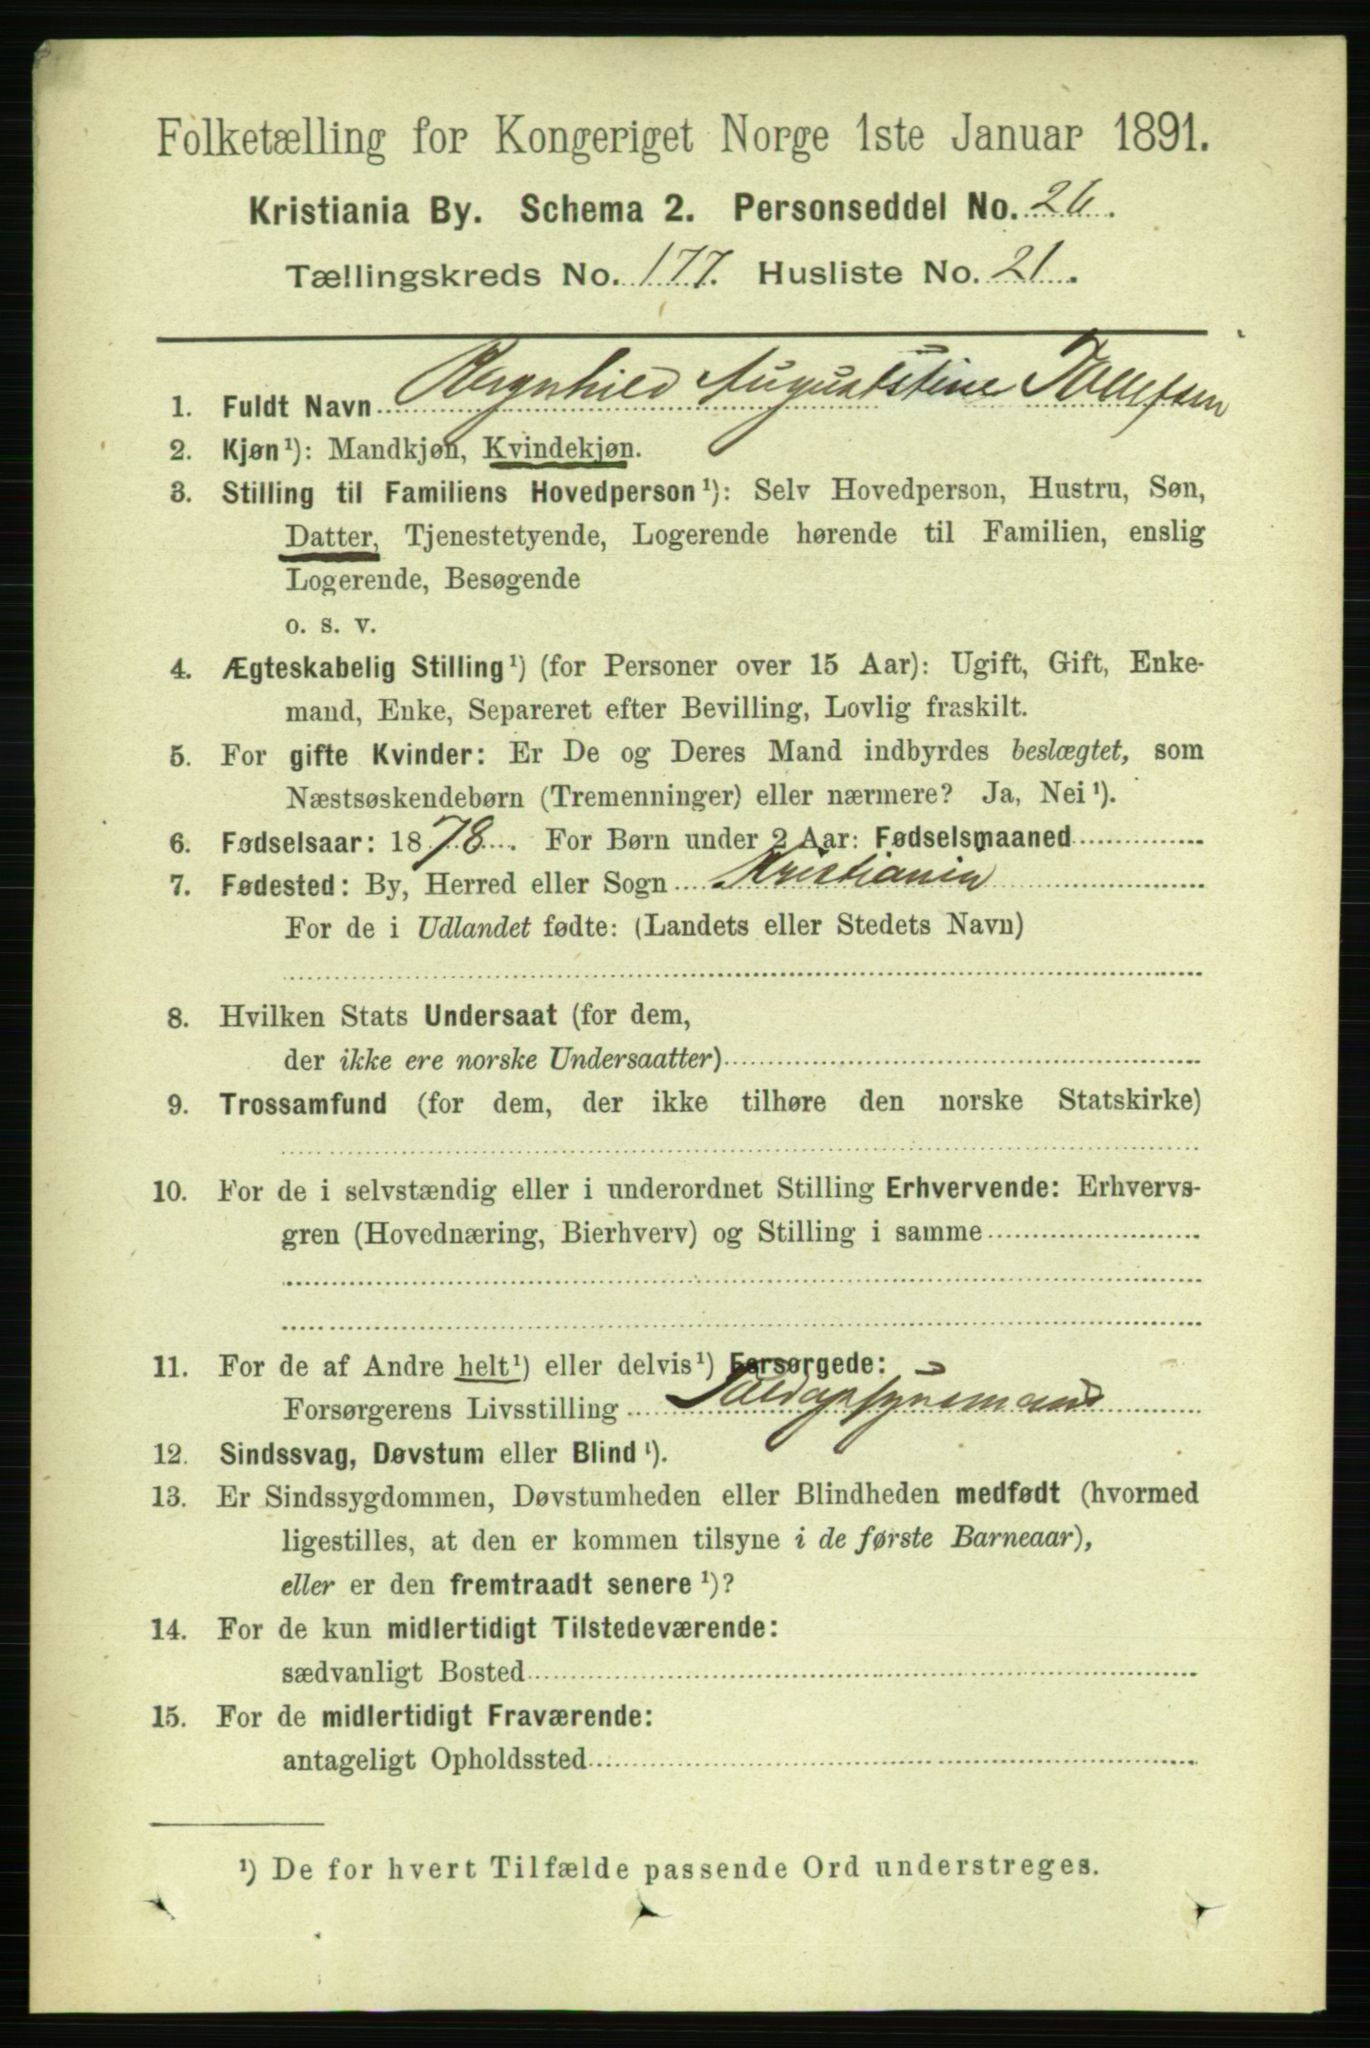 Folketælling for Kongeriget Norge 1ste Januar 1891.
Kristiania By. Schema 2. Personseddel No. 26.
Tællingskreds No. 177. Husliste No. 21.
1. Fuldt Navn Ragnhild Augustine Tollefsen
2. Kjøn¹): Mandkjøn, Kvindekjøn.
3. Stilling til Familiens Hovedperson¹): Selv Hovedperson, Hustru, Søn,
Datter, Tjenestetyende, Logerende hørende til Familien, enslig
Logerende, Besøgende
o. s. v.
4. Ægteskabelig Stilling¹) (for Personer over 15 Aar): Ugift, Gift, Enke-
mand, Enke, Separeret efter Bevilling, Lovlig fraskilt.
5. For gifte Kvinder: Er De og Deres Mand indbyrdes beslægtet, som
Næstsøskendebørn (Tremenninger) eller nærmere? Ja, Nei¹).
6. Fødselsaar: 1878. For Børn under 2 Aar: Fødselsmaaned
7. Fødested: By, Herred eller Sogn Kristiania
For de i Udlandet fødte: (Landets eller Stedets Navn)
8. Hvilken Stats Undersaat (for dem,
der ikke ere norske Undersaatter)
9. Trossamfund (for dem, der ikke tilhøre den norske Statskirke)
10. For de i selvstændig eller i underordnet Stilling Erhvervende: Erhvervs-
gren (Hovednæring, Bierhverv) og Stilling i samme
11. For de af Andre helt¹) eller delvis¹) Forsørgede:
Forsørgerens Livsstilling
12. Sindssvag, Døvstum eller Blind¹).
13. Er Sindssygdommen, Døvstumheden eller Blindheden medfødt (hvormed
ligestilles, at den er kommen tilsyne i de første Barneaar),
eller er den fremtraadt senere¹)?
14. For de kun midlertidigt Tilstedeværende:
sædvanligt Bosted
15. For de midlertidigt Fraværende:
antageligt Opholdssted
¹) De for hvert Tilfælde passende Ord understreges.